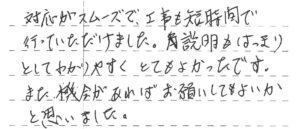 対応がスムーズで、工事も短時間で
行っていただけました。説明もはっきり
としてわかりやすく とてもよかったです。
また機会があればお願いしてもよいか
と思いました。